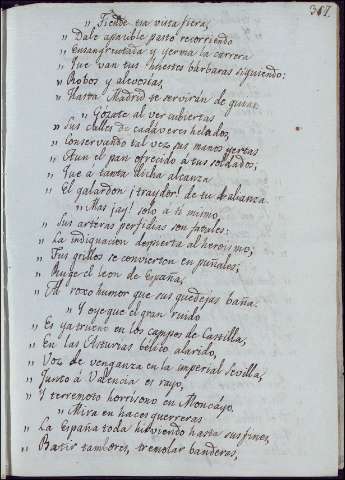 317.
„ Tiende tu vista fiera,
„ Dale apacible pasto recorriendo
„ Ensangrentada y yerma la carrera
„ Que van tus huestes bárbaras siguiendo:
„ Robos y alevosías,
„ Hasta Madrid te servirán de guías.
„ Gózate al ver cubiertas
„ Sus calles de cadáveres helados,
„ Conservando tal vez sus manos yertas
„ Aun el pan ofrecido á tus soldados;
„ Que a tanta dicha alcanza
„ El galardon ¡traydor! de tu alianza.
„ Mas ¡ay! solo a ti mismo,
„ Sus arteras perfidias son fatales:
„ La indignacion despierta al heroismo;
„ Tus grillos se convierten en puñales;
„ Ruge el leon de España,
„ Al roxo humor que sus guedejas baña.
„ Y oye que el gran ruido
„ Es ya trueno en los campos de Castilla,
„ En las Asturias bélico alarido,
„ Voz de venganza en la imperial Sevilla,
„ Junto á Valencia es rayo,
„ Y terremoto horrisono en Moncáyo.
„ Mira en haces guerreras
„ La España toda hirviendo hasta sus fines,
„ Batir tambores, tremolar banderas,